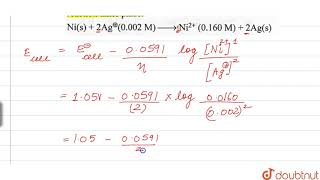 Ni(s) + 2Ag⊕(0.002 M) ⟶ Ni²⁺ (0.160 M) + 2Ag(s)
Ecell = E⊖cell − 0.0591/n log [Ni²⁺]¹/[Ag⊕]²
= 1.05V − 0.0591/(2) × log 0.0160/(0.002)²
= 1.05 − 0.0591/2
doubtnut